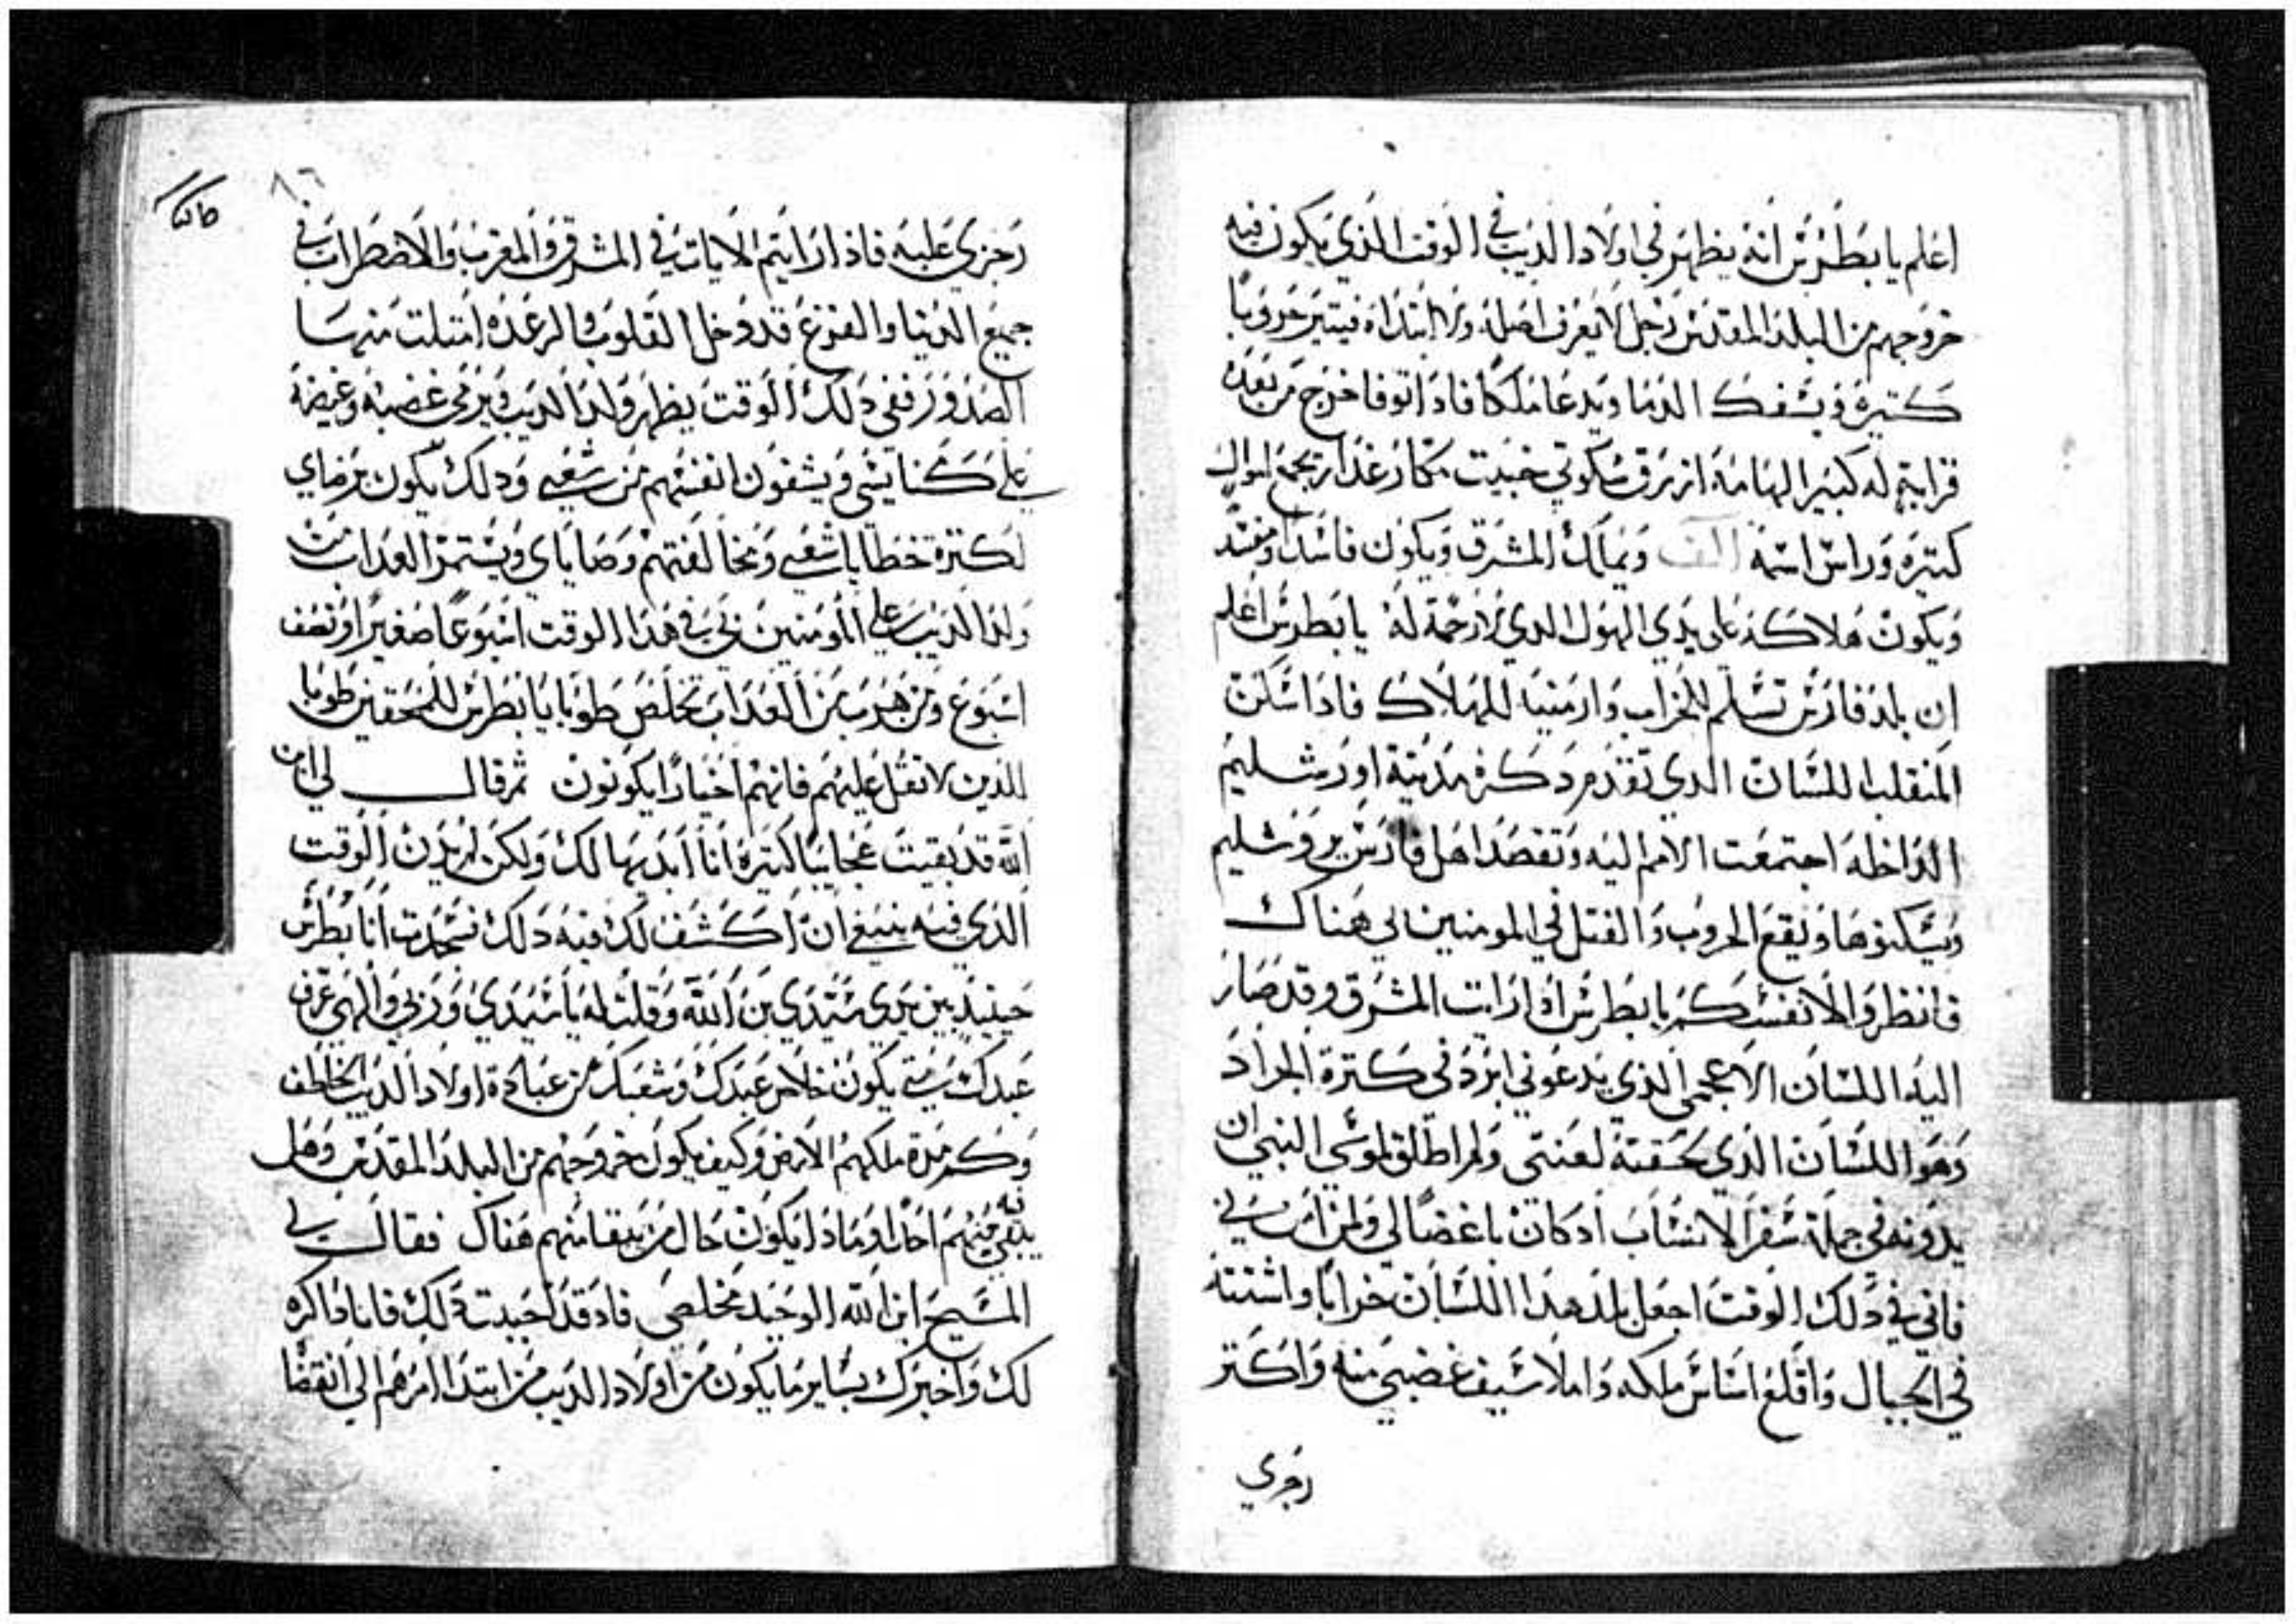 اعلم يا بطرس انه يظهر في اولاد الديب في الوقت الذي يكون فيه
خروجهم من البلد المقدس رجل لا يعرف اصله ولا ابتداه فيتير حروبا
كتيرة ويسفك الدما ويدعا ملكا فادا توفا خرج من بعده
قرابة له كبير الهامة ازرق خبيت مكار غدار يجمع اموال
كتيرة وراس اسمه الف ويملك المشرق ويكون فاسدا ومفسد
ويكون هلاكه على يدي الهول الدي لا رحمة له يا بطرس اعلم
ان بلد فارس تسلم للخراب وارمنيا للهلاك فادا سكن
المنقلب اللسان الدي تقدم دكره مدينة اورشليم
الداخله اجتمعت الامم اليه وتقصد اهل فارس يروشليم
ويسكنوها ويقع الحروب والقتل في المومنين لي هناك
فانظروا لانفسكم يا بطرس ادا رايت المشرق وقد صار
اليه اللسان الاعجمي الذي يدعوني ابرد في كترة الجراد
وهو اللسان الذي لحقته لعنتي ولم اطلق لموسي النبي ان
يدونه في جملة سفر الانساب اد كان باغضا لي ولمن امن بي
فاني في دلك الوقت اجعل بلد هدا اللسان خرابا واشتته
في الجبال واقلع اساس ملكه واملا سيف غضبي منه واكتر
رجزي
رجزي عليه فاذا رايتم الايات في المشرق والمغرب والاضطراب في
جميع الدنيا والفزع قد دخل القلوب والرعده امتلت منها
الصدور ففي دلك الوقت يظهر ولد الديب ويرمي غضبه وغيضه
على كنايسي ويشفون انفسهم من شعبي ودلك يكون برضاي
لكترة خطايا شعبي ومخالفتهم وصاياي ويستمر العداب من
ولد الديب على المومنين بي في هدا الوقت اسبوعا صغيرا ونصف
اسبوع ومن هرب من العداب تخلص طوبا يا بطرس للمحقين طوبا
للذين لا تقل عليهم فانهم اخيارا يكونون ثم قال لي ابن
الله قد بقيت عجايبا كتيرة انا ابديها لك ولكن لم يدن الوقت
الذي فيه ينبغي ان اكشف لك فيه دلك فسجدت انا بطرس
حينيد بين يدي سيدي بن الله وقلت له يا سيدي وربي والهي عرف
عبدك متي يكون خلاص عبدك وشعبك من عبادة اولاد الديب الخاطف
وكم مدة ملكهم الارض وكيف يكون خروجهم من البلد المقدس وهل
يبقي فيه منهم احدا وماذا يكون حال من يبقا منهم هناك فقال لي
المسيح ابن الله الوحيد مخلصي فاد قد احببت دلك فانا داكره
لك واخبرك بساير ما يكون من اولاد الديب من ابتدا امرهم الي انقضا